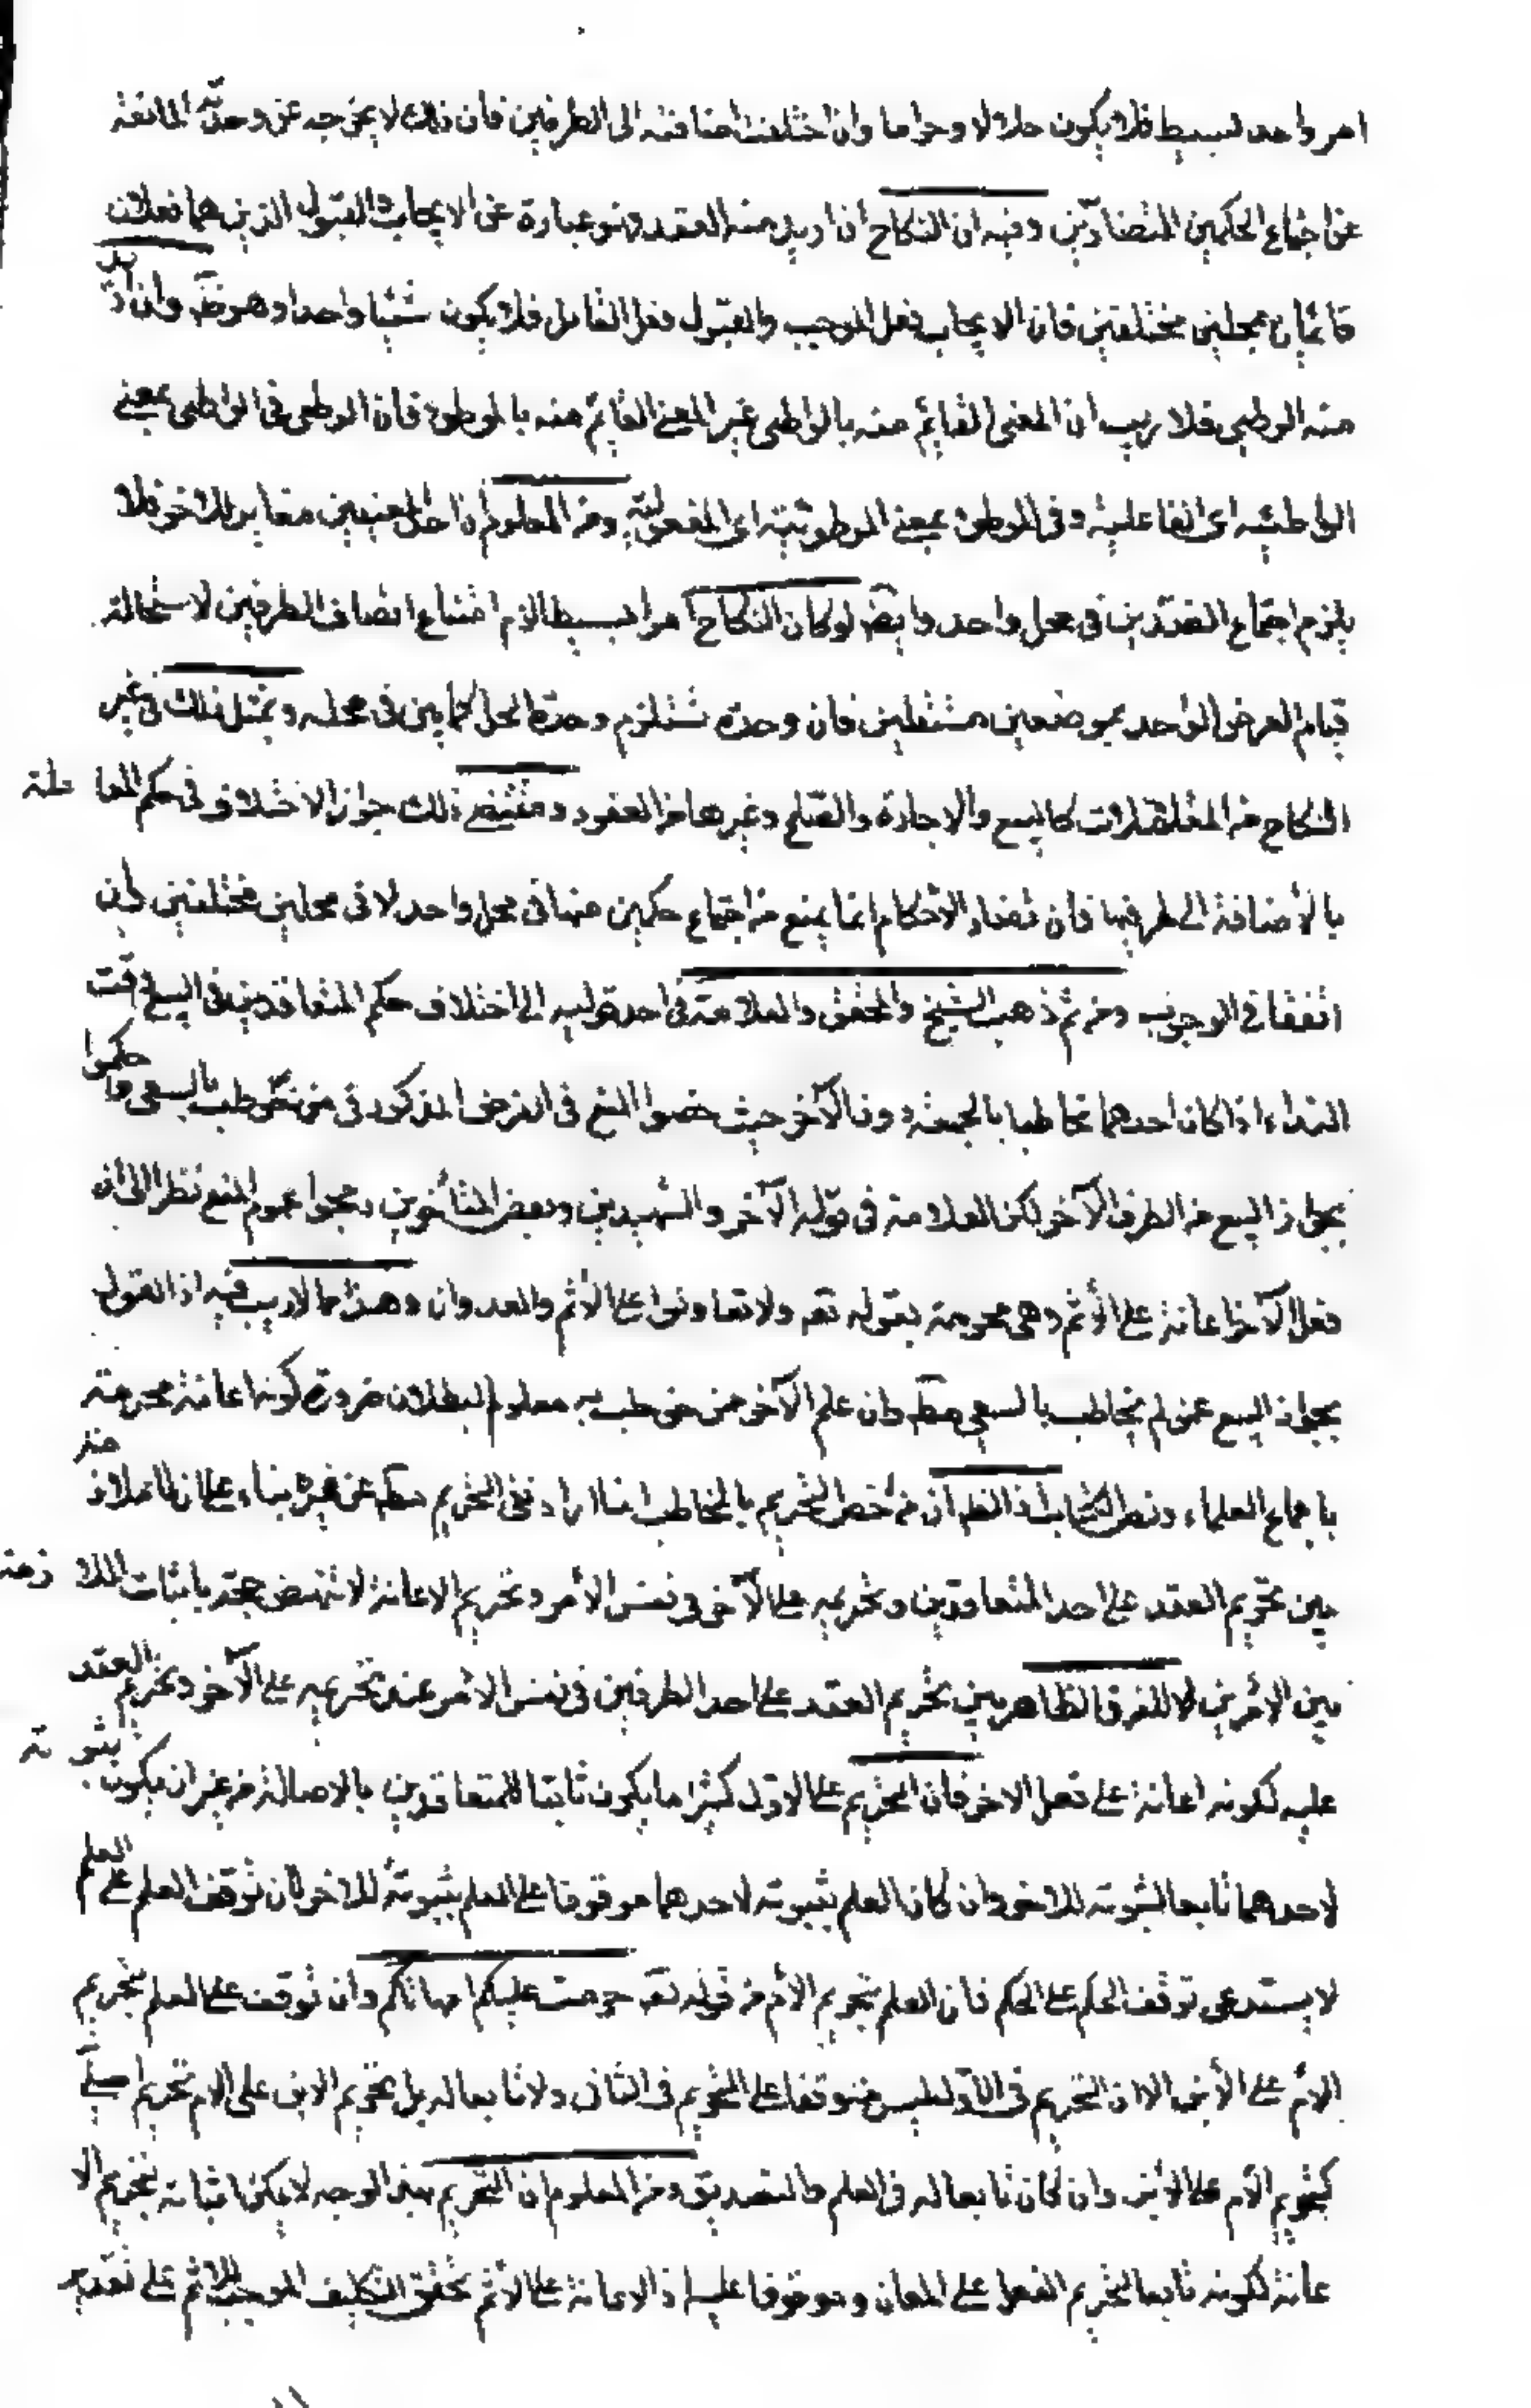 امر واحد بسيط فلا يكون حلالا وحراما وان اختلفت اضافته الى الطرفين فان ذلك لا يخرجه عن وحدته المانعة
عن اجتماع الحكمين المتضادين وفيه ان النكاح ان اريد منه العقد فهو عبارة عن الايجاب والقبول الذين هما فعلان
قائمان بمحلين مختلفين فان الايجاب فعل الموجب والقبول فعل القابل فلا يكون شيئا واحدا وهو ظ وان اريد
منه الوطي فلا ريب ان المعنى القائم منه بالواطي غير المعنى القائم منه بالموطوء فان الوطي في الواطي بمعنى
الواطئيه اى الفاعلية وفي الموطوء بمعنى الموطوئيته اى المفعولية ومن المعلوم ان احد المعنيين مغاير للاخر فلا
يلزم اجتماع الضدين في محل واحد وايض لو كان النكاح امرا بسيطا لزم امتناع اتصاف الطرفين لاستحالة
قيام العرض الواحد بموضعين مستقلين فان وحدته تستلزم وحدة المحل كما بين في محله وبمثل ذلك في غير
النكاح من المعاملات كالبيع والاجارة والصلح وغيرها من العقود ومقتضى ذلك جواز الاختلاف في حكم المعاملة
بالاضافة الى طرفيها فان تضاد الاحكام انما يمنع من اجتماع حكمين منها في محل واحد لا في محلين مختلفين وان
اتفقا في الوجوب ومن ثم ذهب الشيخ والمحقق والعلامة في احد قوليه الى اختلاف حكم المتعاقدين في البيع وقت
النداء اذا كان احدهما مخاطبا بالجمعة دون الآخر حيث خصوا المنع في الفرض المذكور في من خوطب بالسعي وحكموا
بجواز البيع من الطرف الآخر لكن العلامة في قوله الآخر والشهيدين وبعض المتأخرين رجحوا عموم المنع نظرا الى ان
فعل الآخر اعانة على الأثم وهى محرمة بقوله تع ولا تعاونوا على الأثم والعدوان وهذا مما لا ريب فيه اذ القول
بجواز البيع عمن لم يخاطب بالسعي مط وان علم الآخر ممن خوطب به معلوم البطلان ضرورة كونه اعانة محرمة
باجماع العلماء ونص الكتاب اذ الظ ان من خص التحريم بالمخاطب انما اراد نفى التحريم مط عن غيره بناء على ان الملازمة
بين تحريم العقد على احد المتعاقدين وتحريمه على الآخر في نفس الأمر وتحريم الاعانة لا تنهض حجة باثبات الملازمة
بين الأمرين للفرق الظاهر بين تحريم العقد على احد الطرفين في نفس الامر عند تحريمه على الآخر وتحريم العقد
عليه لكونه اعانة على فعل الاخر فان التحريم على الاول كثيرا ما يكون ثابتا للمتعاقدين بالاصالة من غير ان يكون ثبوته
لاحدهما تابعا لثبوته للاخر وان كان العلم بثبوته لاحدهما موقوفا على العلم بثبوته للاخر لان توقف العلم على العلم
لا يستدعى توقف الحكم على الحكم فان العلم بتحريم الأم من قوله تع حرمت عليكم امهاتكم وان توقف على العلم بتحريم
الام على الأبن الا ان التحريم في الاول ليس متوقفا على التحريم في الثاني ولا تابعا له بل تحريم الابن على الام تحريم اصلى
كتحريم الأم على الأبن وان كان تابعا له في العلم والتصديق ومن المعلوم ان التحريم بهذا الوجه لا يمكن اثباته بتحريم الا
عانة لكونه تابعا لتحريم الفعل على المعان وموقوفا عليه اذ الاعانة على الأثم تحقق التكليف الموجب للاثم على تقدير